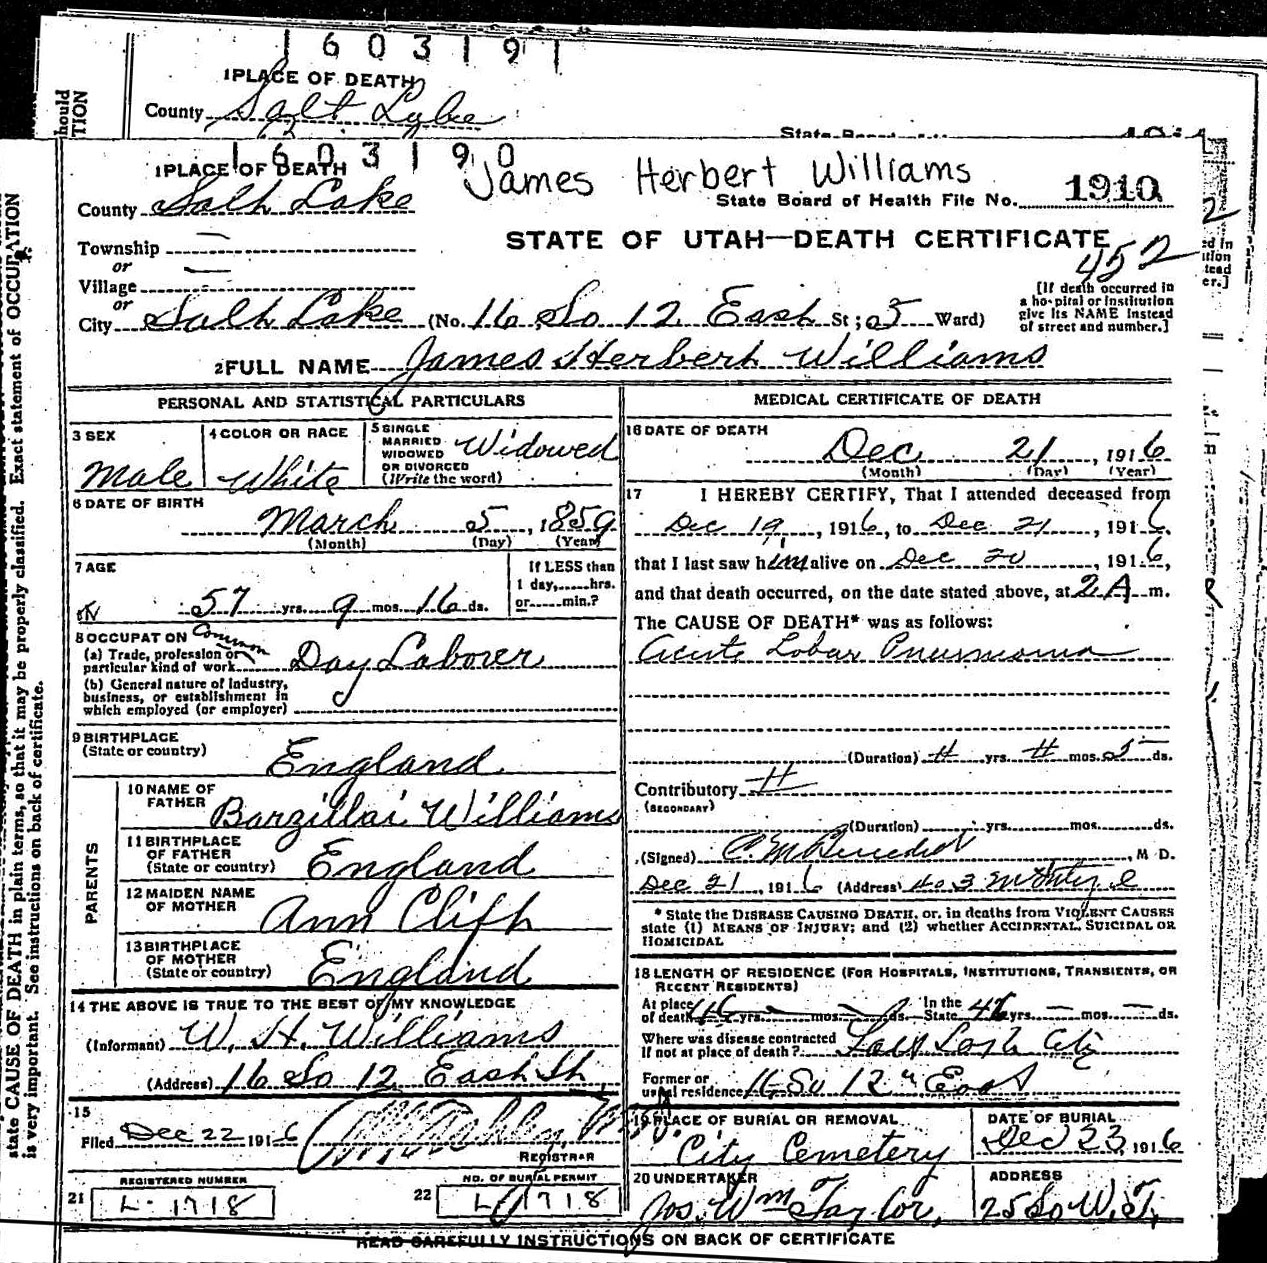 1603191
1 PLACE OF DEATH
County Salt Lake
hould
TION
1603190
1 PLACE OF DEATH
James Herbert Williams
County Salt Lake
State Board of Health File No. 1910
Township —
STATE OF UTAH—DEATH CERTIFICATE
452
or
Village —
or
City Salt Lake (No. 16 So 12 East St; 5 Ward)
[If death occurred in
a hospital or institution
give its NAME instead
of street and number.]
2 FULL NAME James Herbert Williams
PERSONAL AND STATISTICAL PARTICULARS
3 SEX
Male
4 COLOR OR RACE
White
5 SINGLE
MARRIED
WIDOWED
OR DIVORCED
(Write the word)
Widowed
6 DATE OF BIRTH
March 5, 1859
(Month) (Day) (Year)
7 AGE
57 yrs. 9 mos. 16 ds.
If LESS than
1 day,......hrs.
or......min.?
8 OCCUPATION
(a) Trade, profession or
particular kind of work
Common Day Laborer
(b) General nature of industry,
business, or establishment in
which employed (or employer)
9 BIRTHPLACE
(State or country)
England
PARENTS
10 NAME OF
FATHER
Barzillai Williams
11 BIRTHPLACE
OF FATHER
(State or country)
England
12 MAIDEN NAME
OF MOTHER
Ann Clift
13 BIRTHPLACE
OF MOTHER
(State or country)
England
14 THE ABOVE IS TRUE TO THE BEST OF MY KNOWLEDGE
(Informant) W. H. Williams
(Address) 16 So 12 East St.
15
Filed Dec 22 1916
REGISTRAR
REGISTERED NUMBER
21 L-1718
NO. OF BURIAL PERMIT
22 L 1718
MEDICAL CERTIFICATE OF DEATH
16 DATE OF DEATH
Dec 21, 1916
(Month) (Day) (Year)
17 I HEREBY CERTIFY, That I attended deceased from
Dec 19, 1916, to Dec 21, 1916,
that I last saw him alive on Dec 20, 1916,
and that death occurred, on the date stated above, at 2 A m.
The CAUSE OF DEATH* was as follows:
Acute Lobar Pneumonia
(Duration) # yrs. # mos. 5 ds.
Contributory #
(SECONDARY)
(Duration) yrs. mos. ds.
(Signed) C. M. Benedict, M D.
Dec 21, 1916 (Address)
* State the DISEASE CAUSING DEATH, or, in deaths from VIOLENT CAUSES
state (1) MEANS OF INJURY; and (2) whether ACCIDENTAL, SUICIDAL OR
HOMICIDAL
18 LENGTH OF RESIDENCE (FOR HOSPITALS, INSTITUTIONS, TRANSIENTS, OR
RECENT RESIDENTS)
At place
of death 46 yrs. — mos. — ds.
In the
State 46 yrs. — mos. — ds.
Where was disease contracted
If not at place of death? Salt Lake City
Former or
usual residence 16 So 12th East
19 PLACE OF BURIAL OR REMOVAL
City Cemetery
DATE OF BURIAL
Dec 23, 1916
20 UNDERTAKER
Jos. Wm Taylor,
ADDRESS
25 So W. T.
READ CAREFULLY INSTRUCTIONS ON BACK OF CERTIFICATE
state CAUSE OF DEATH in plain terms, so that it may be properly classified. Exact statement of OCCUPATION
is very important. See instructions on back of certificate.